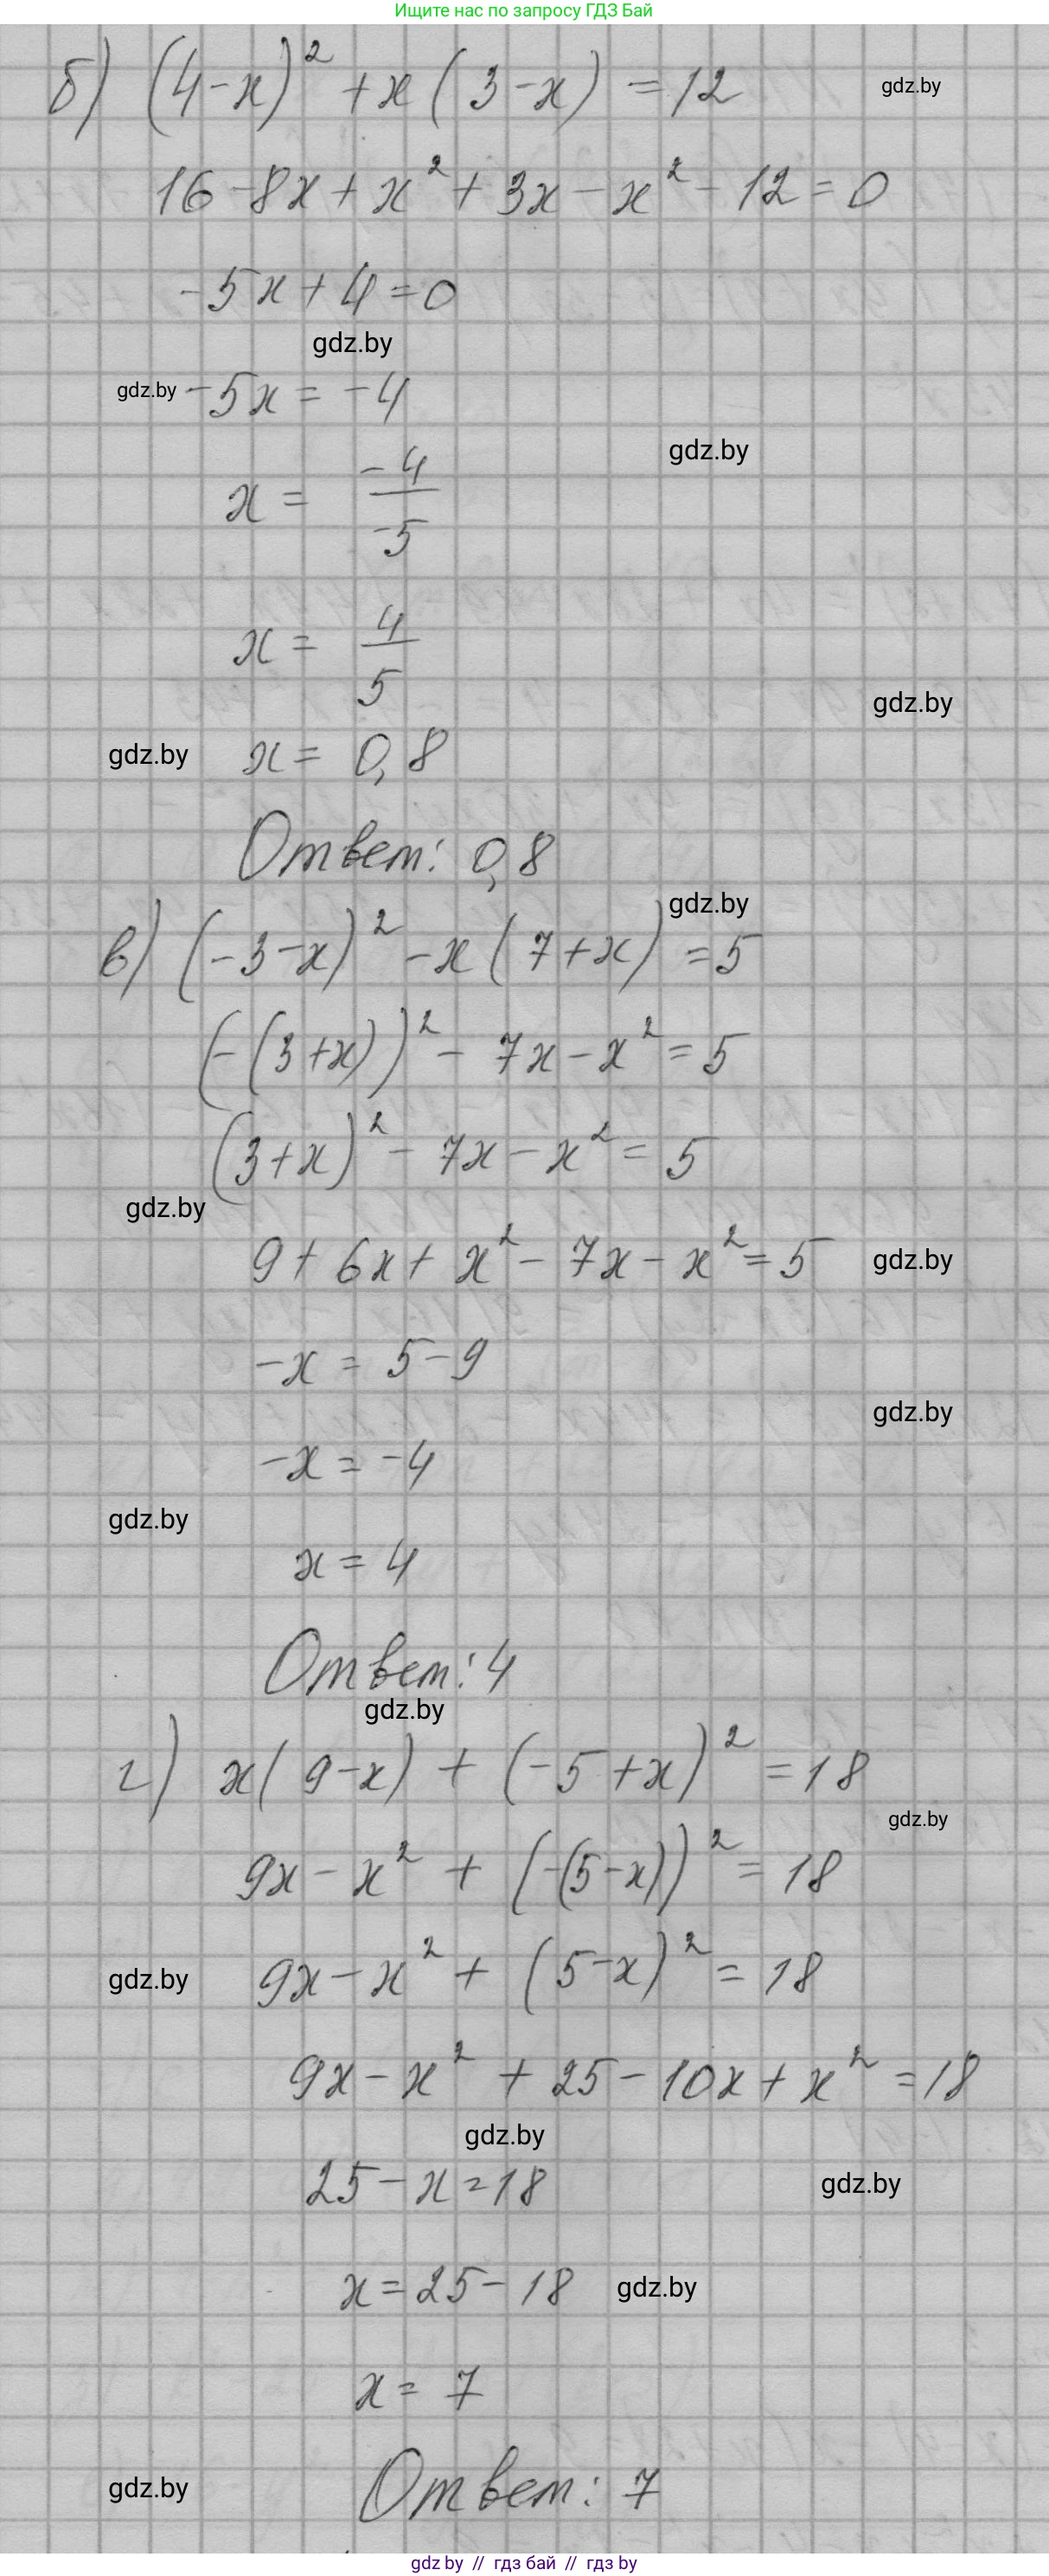 Ищите нас по запросу ГДЗ Бай
б) (4-x)² + x(3-x) = 12
gdz.by
16 - 8x + x² + 3x - x² - 12 = 0
-5x + 4 = 0
gdz.by
gdz.by
-5x = -4
gdz.by
x = -4/-5
x = 4/5
gdz.by
gdz.by
x = 0,8
Ответ: 0,8
gdz.by
в) (-3-x)² - x(7+x) = 5
(-(3+x))² - 7x - x² = 5
(3+x)² - 7x - x² = 5
gdz.by
9 + 6x + x² - 7x - x² = 5
gdz.by
-x = 5-9
gdz.by
-x = -4
gdz.by
x = 4
Ответ: 4
gdz.by
г) x(9-x) + (-5+x)² = 18
gdz.by
9x - x² + (-(5-x))² = 18
gdz.by
9x - x² + (5-x)² = 18
9x - x² + 25 - 10x + x² = 18
gdz.by
25 - x = 18
gdz.by
x = 25 - 18
gdz.by
x = 7
gdz.by
Ответ: 7
gdz by // гдз бай // гдз by